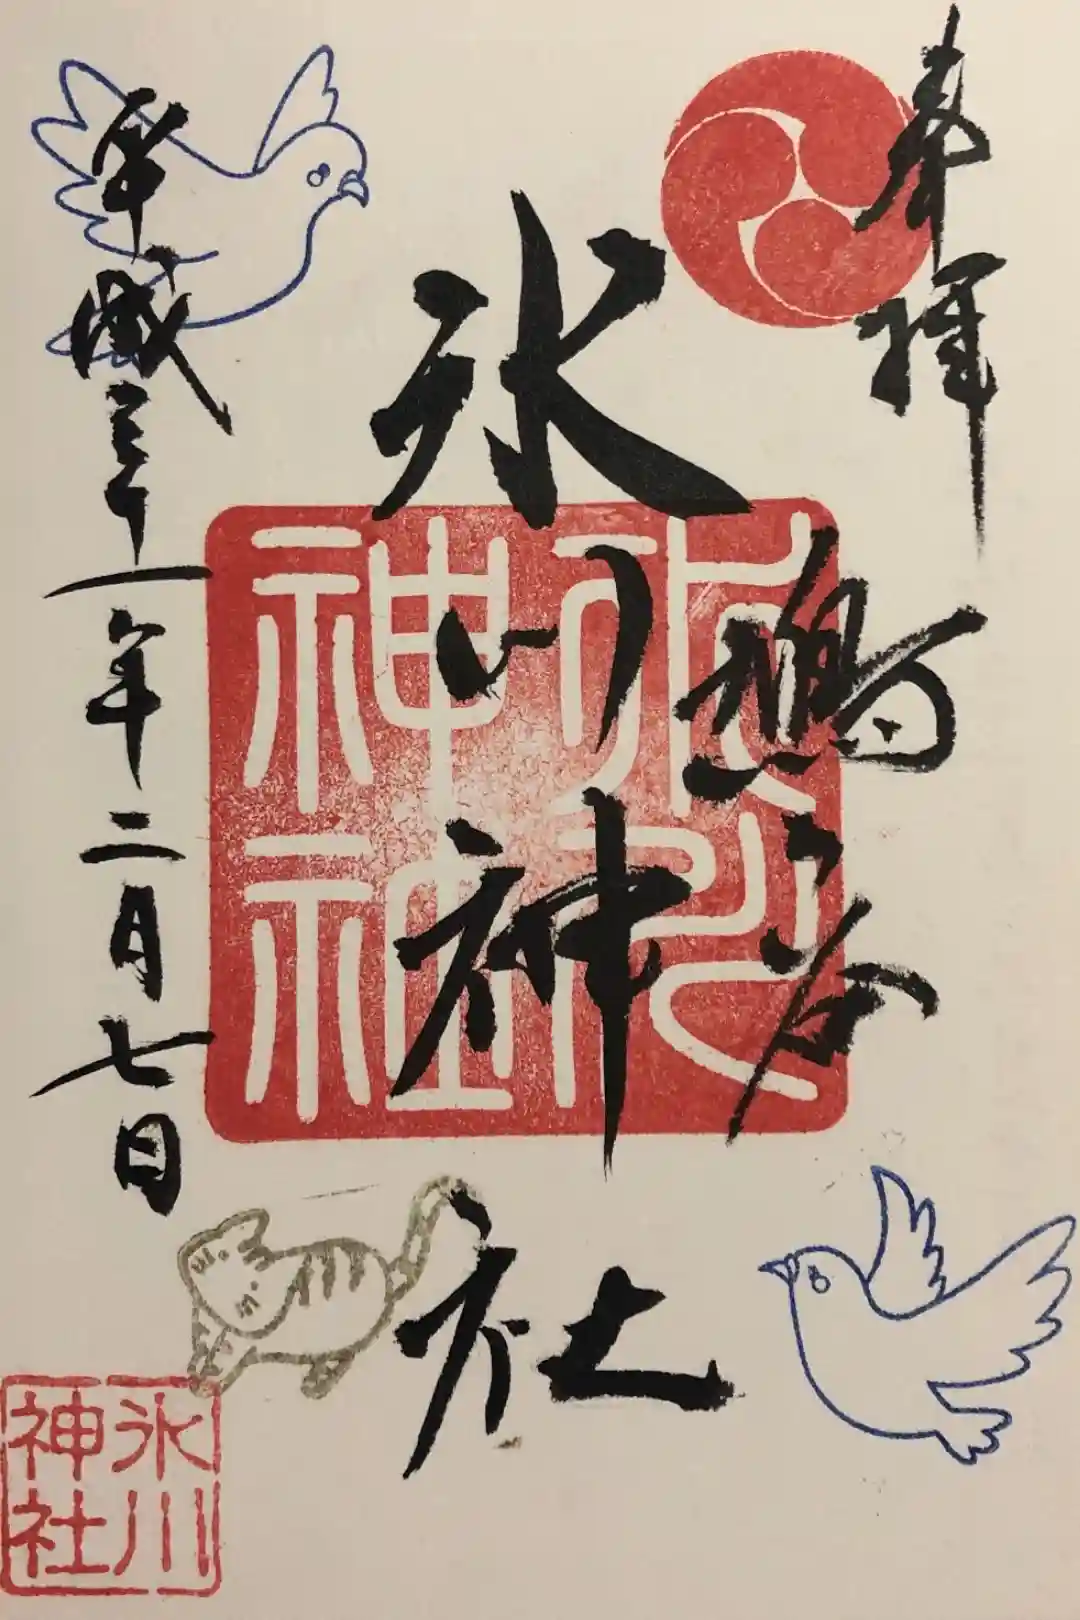 奉拝
鳩ヶ谷
氷川神社
平成三十一年二月七日
氷川
神社
氷川
神社